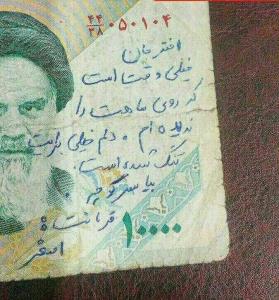 ۴۴/۲۸ ۰۵۰۱۰۴
اختر جان
خیلی وقت است
که روی ماهت را
ندیده ام. دلم خیلی برایت
تنگ شده است.
بیا سر کوچه.
قربانت
اصغر
۱۰۰۰۰